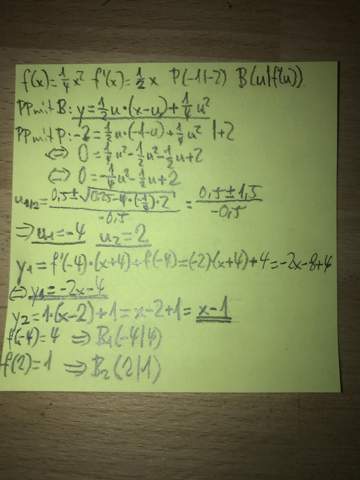 f(x)=1/4x² f'(x)=1/2x P(-1|-2) B(u|f(u))
PP mit B: y=1/2u·(x-u)+1/4u²
PP mit P: -2=1/2u·(-1-u)+1/4u² |+2
⇔ 0=1/4u²-1/2u²-1/2u+2
⇔ 0=-1/4u²-1/2u+2
u1/2=(0,5±√(0,25-4·(-1/4)·2))/(-0,5)=(0,5±1,5)/(-0,5)
⇒u1=-4 u2=2
y1=f'(-4)·(x+4)+f(-4)=(-2)(x+4)+4=-2x-8+4
⇔ y1=-2x-4
y2=1·(x-2)+1=x-2+1=x-1
f(-4)=4 ⇒ B1(-4|4)
f(2)=1 ⇒ B2(2|1)